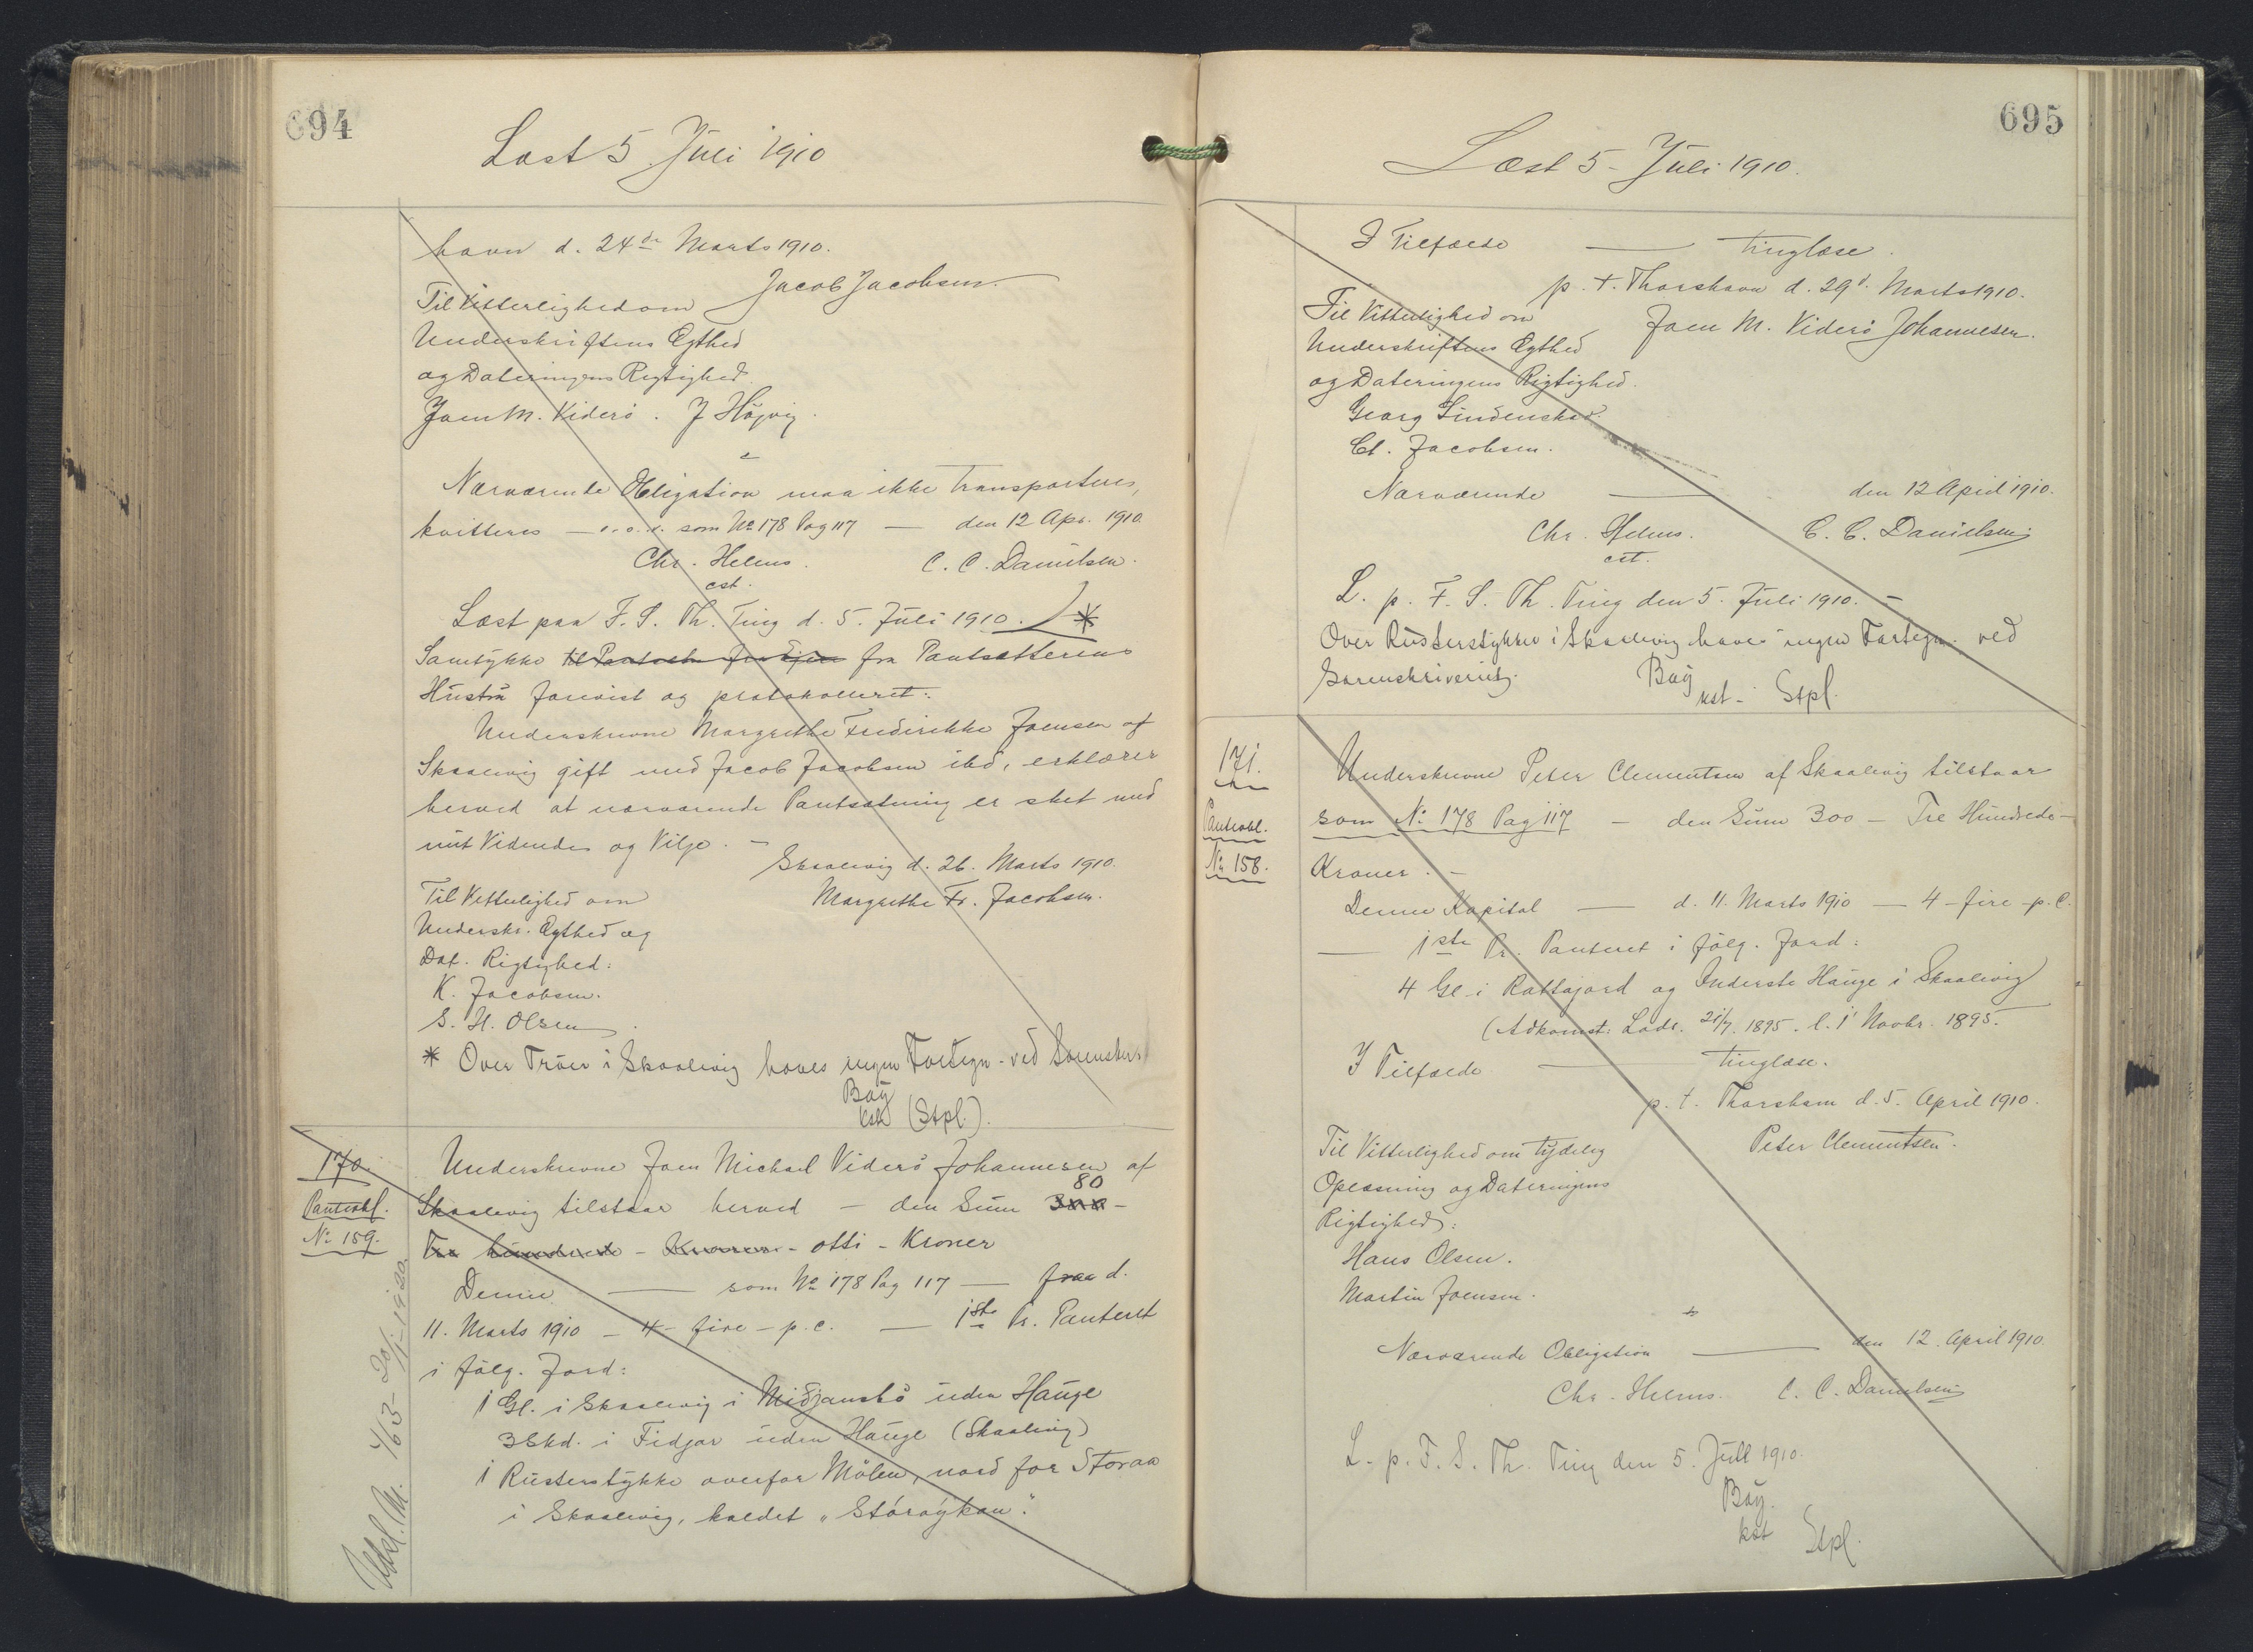 694
Læst 5. Juli 1910
havn d. 24de Marts 1910.
Jacob Jacobsen.
Til Vitterlighed om
Underskriftens Ægthed
og Dateringens Rigtighed.
Joen M. Viderö. J Höjvig.
Nærværende Obligation maa ikke transporteres,
kvitteres — o.s.v. som No 178 Pag 117 — den 12 Apr. 1910.
Chr. Helms. C. C. Danielsen.
cst.
Læst paa F. S. Th. Ting d. 5. Juli 1910. *
Samtykke til fra Ejeren fra Pantsætterens
Hustru forevist og protokolleret:
Underskrevne Margrethe Frederikke Joensen af
Skaalevig gift med Jacob Jacobsen ibd, erklærer
herved at nærværende Pantsætning er sket med
mit Vidende og Vilje. —
Skaalevig d. 26. Marts 1910.
Margrethe Fr. Jacobsen.
Til Vitterlighed om
Underskr. Ægthed og
Dat. Rigtighed:
K. Jacobsen.
S. H. Olsen.
* Over Tröer i Skaalevig haves ingen Fortegn. ved Sorenskr.
Bay
kst (Stpl.).
170.
Pantobl.
No 159.
Underskrevne Joen Michael Viderö Johannesen af
Skaalevig tilstaar herved — den Sum 300 80 —
Tre hundrede - Kroner - otti - Kroner
Denne — som No 178 Pag 117 — fraa d.
11. Marts 1910 — 4 - fire - p.c. — 1ste Pr. Panteret
i følg. Jord:
1 Gl. i Skaalevig i Midjanstö uden Hauge
3 Skd. i Fidjar uden Hauge (Skaalevig)
1 Rüsterstykke overfor Mölen, nord for Storaa
i Skaalevig, kaldet "Stóraýkan".
Udsl. M. 463 20/1-1920.
695
Læst 5 - Juli 1910.
I Tilfælde — tinglæse.
p. t. Thorshavn d. 29d. Marts 1910.
Til Vitterlighed om
Joen M. Viderö Johannesen.
Underskriftens Ægthed
og Dateringens Rigtighed.
Georg Lindenskov.
Cl. Jacobsen.
Nærværende — den 12 April 1910.
Chr. Helms. C. C. Danielsen
cst.
L. p. F. S. Th. Ting den 5. Juli 1910. —
Over Rüsterstykker i Skaalevig haves ingen Fortegn. ved
Sorenskriveriet.
Bay
kst - Stpl.
171.
Pantobl.
No 158.
Underskrevne Peter Clementsen af Skaalevig tilstaar
som No 178 Pag 117 — den Sum 300 — Tre Hundrede —
Kroner. —
Denne Kapital — d. 11. Marts 1910 — 4 - fire - p.c.
— 1ste Pr. Panteret i følg. Jord:
4 Gl. i Rattajord og Inderste Hauge i Skaalevig
(Adkomst: Lodr. 21/7. 1895. l. 1 Novbr. 1895.
I Tilfælde — tinglæse.
p. t. Thorshavn d. 5. April 1910.
Peter Clementsen.
Til Vitterlighed om tydelig
Oplæsning og Dateringens
Rigtighed:
Hans Olsen.
Martin Joensen.
Nærværende Obligation — den 12. April 1910.
Chr. Helms. C. C. Danielsen
L. p. F. S. Th. Ting den 5. Juli 1910.
Bay.
kst Stpl.